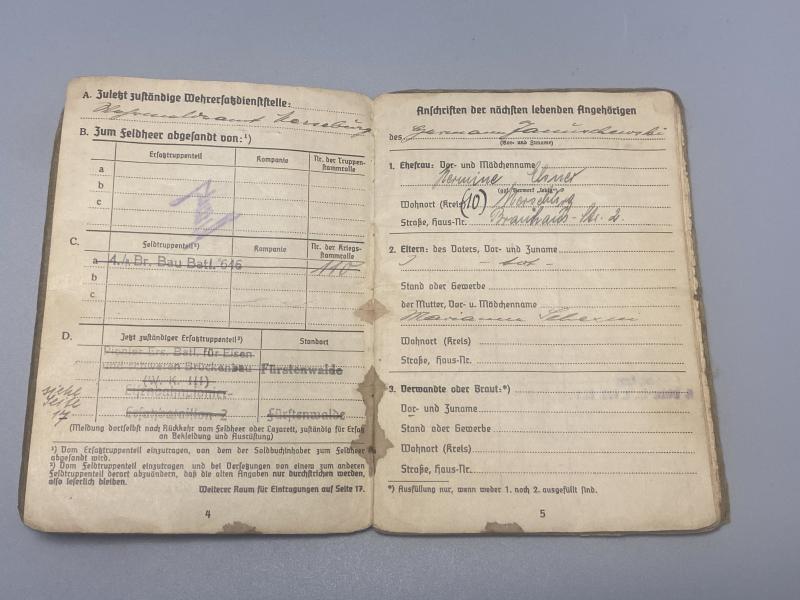 A. Zuletzt zuständige Wehrersatzdienststelle:
Merseburg
B. Zum Feldheer abgesandt von:¹)
Ersatztruppenteil Kompanie Nr. der Truppen-
stammrolle
a
b
c
C. Feldtruppenteil²) Kompanie Nr. der Kriegs-
stammrolle
a 4./ Br. Bau Batl. 646 110
b
c
D. Jetzt zuständiger Ersatztruppenteil²) Standort
Pionier Ers. Batl. für Eisen-
und schweren Brückenbau Fürstenwalde
(W. K. III)
Eisenbahnpionier-
Ersatzbataillon 2 Fürstenwalde
siehe
Seite
17
(Meldung dortselbst nach Rückkehr vom Feldheer oder Lazarett, zuständig für Ersatz
an Bekleidung und Ausrüstung)
¹) Vom Ersatztruppenteil einzutragen, von dem der Soldbuchinhaber zum Feldheer
abgesandt wird.
²) Vom Feldtruppenteil einzutragen und bei Versetzungen von einem zum anderen
Feldtruppenteil derart abzuändern, daß die alten Angaben nur durchstrichen werden,
also leserlich bleiben.
Weiterer Raum für Eintragungen auf Seite 17.
4
Anschriften der nächsten lebenden Angehörigen
des Hermann Januschewski
(Vor- und Zuname)
1. Ehefrau: Vor- und Mädchenname
Hermine
(ggf. Vermerk „ledig")
Wohnort (Kreis) (10) Merseburg
Straße, Haus-Nr. Brauhaus-Str. 2.
2. Eltern: des Vaters, Vor- und Zuname
- tot -
Stand oder Gewerbe
der Mutter, Vor- u. Mädchenname
Marianne
Wohnort (Kreis)
Straße, Haus-Nr.
3. Verwandte oder Braut:*)
Vor- und Zuname
Stand oder Gewerbe
Wohnort (Kreis)
Straße, Haus-Nr.
*) Ausfüllung nur, wenn weder 1. noch 2. ausgefüllt sind.
5